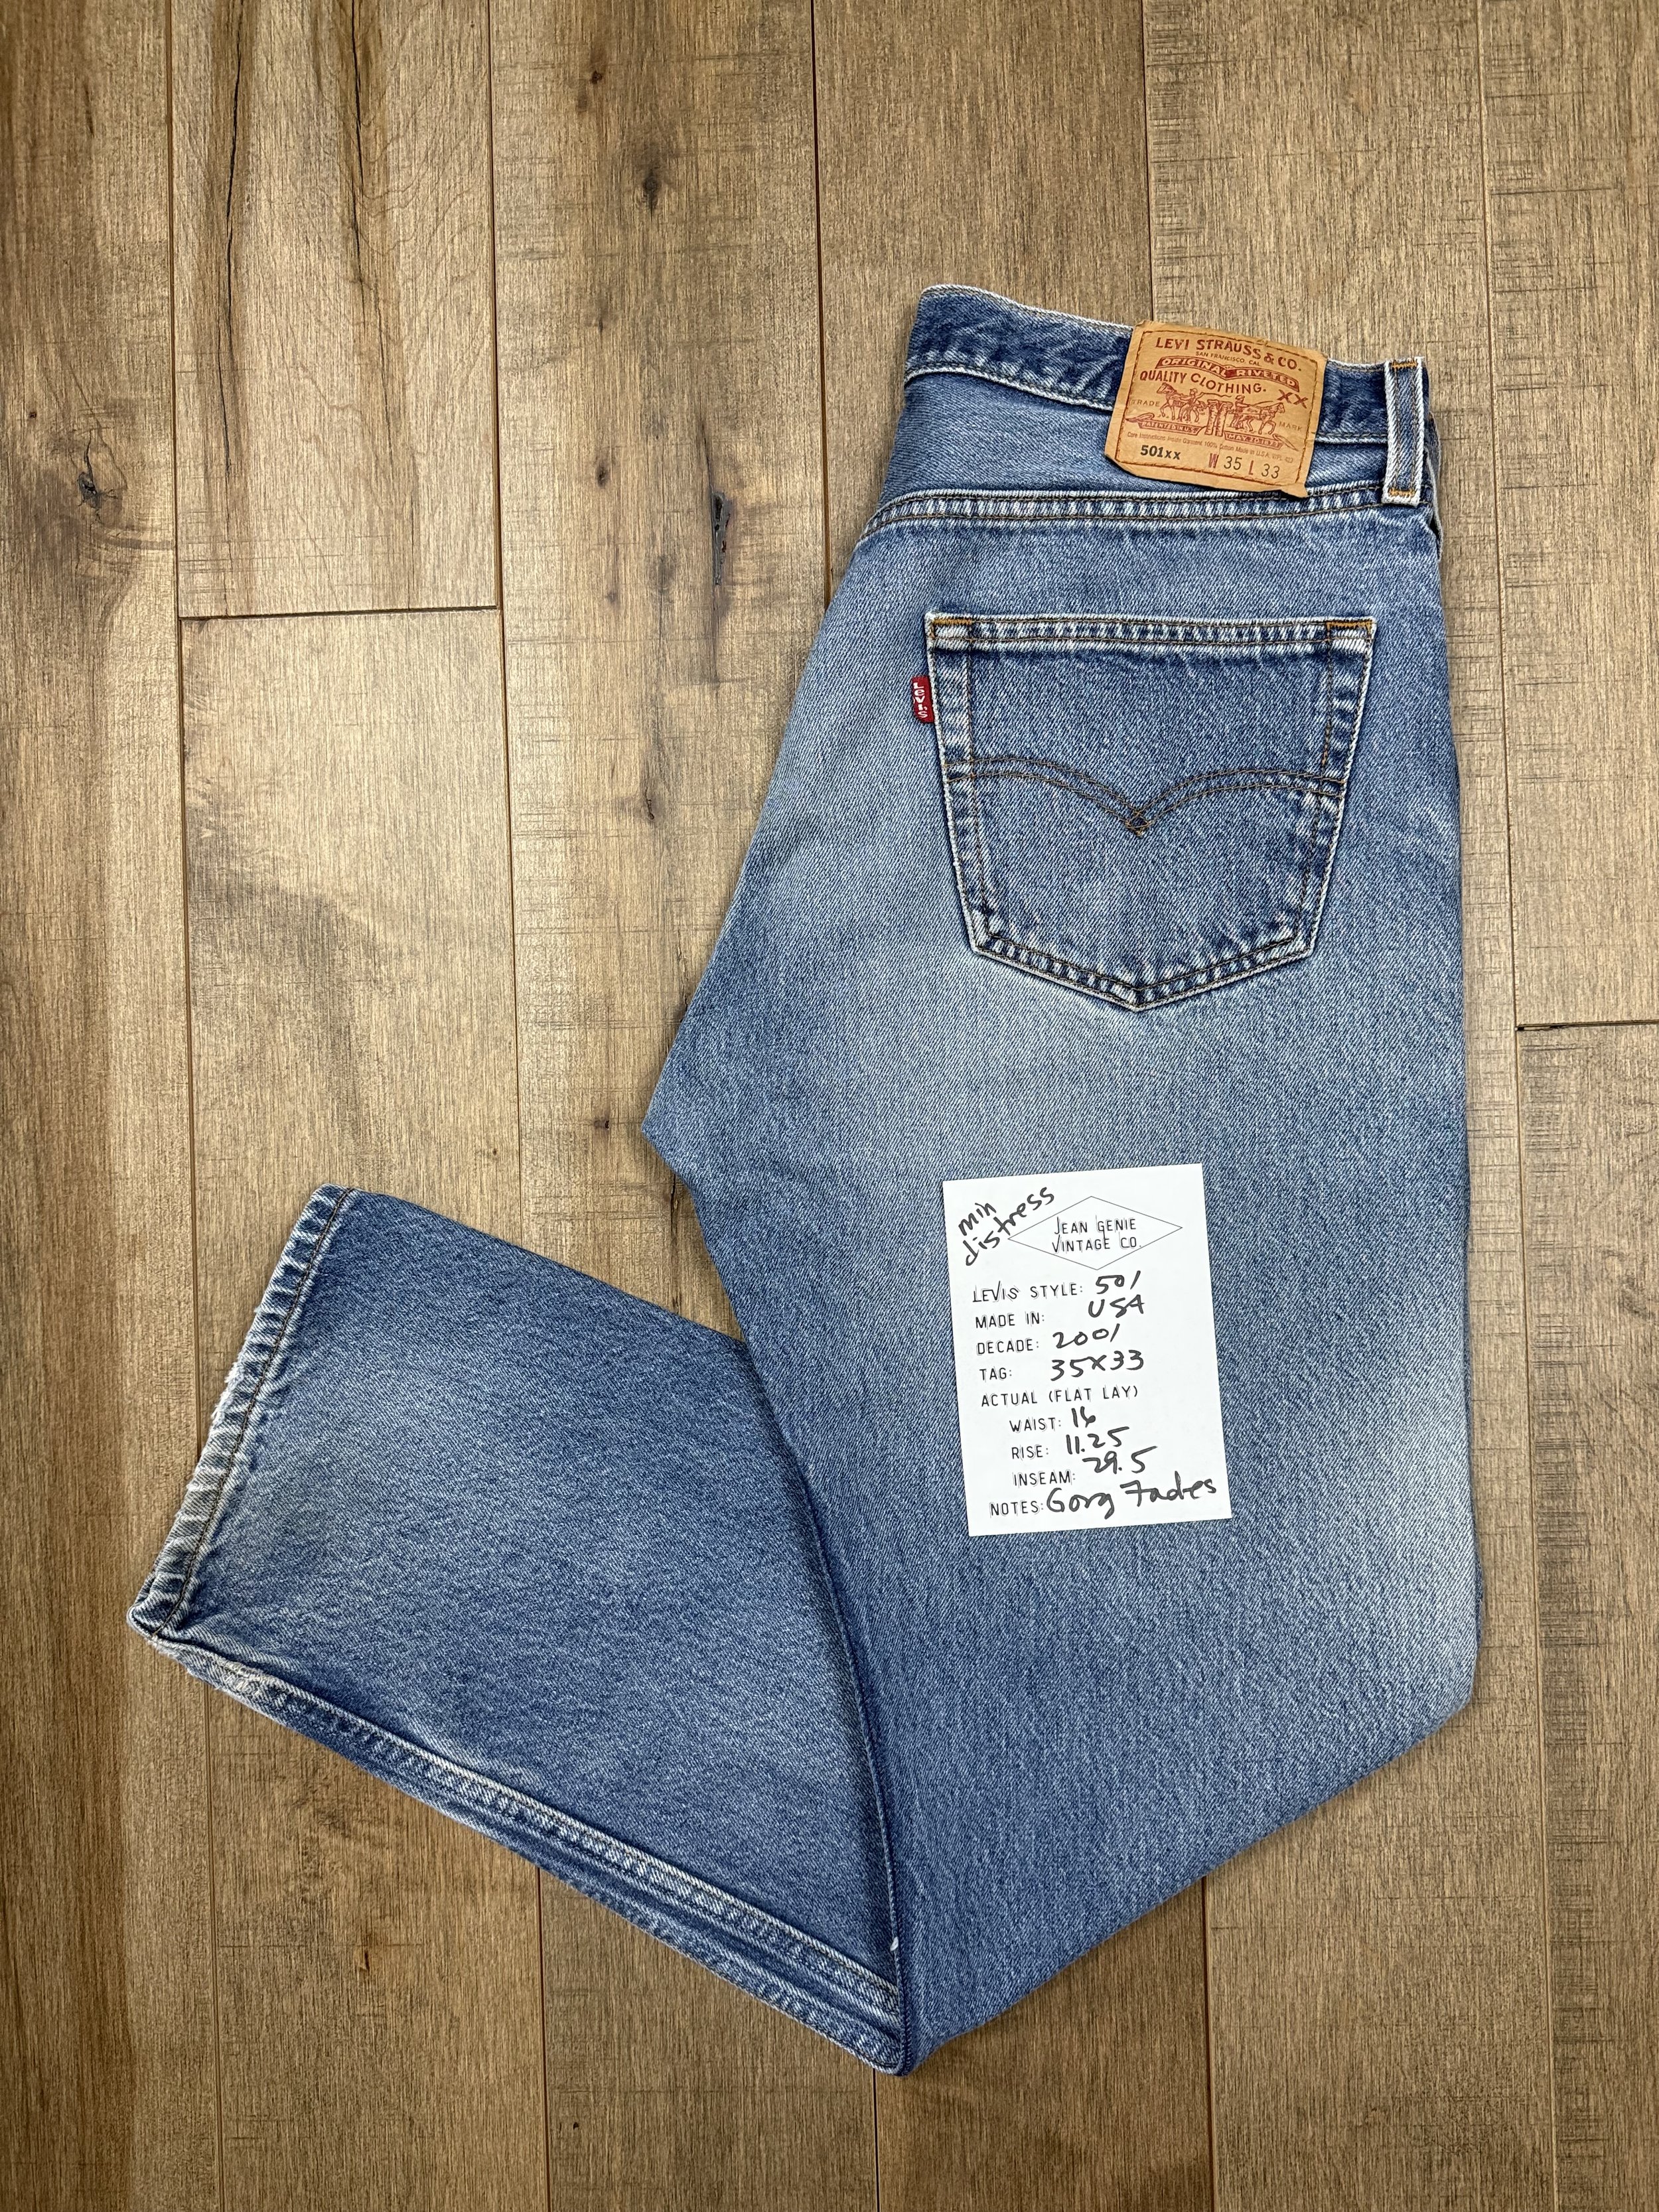 LEVI STRAUSS & CO.
SAN FRANCISCO, CAL.
ORIGINAL RIVETED
QUALITY CLOTHING.
XX
TRADE MARK
MAY 20 1873
501xx W 35 L 33
Levi's
min
distress
JEAN GENIE
VINTAGE CO.
LEVIS STYLE: 501
MADE IN: USA
DECADE: 2001
TAG: 35X33
ACTUAL (FLAT LAY)
WAIST: 16
RISE: 11.25
INSEAM: 29.5
NOTES: Gorg Fades